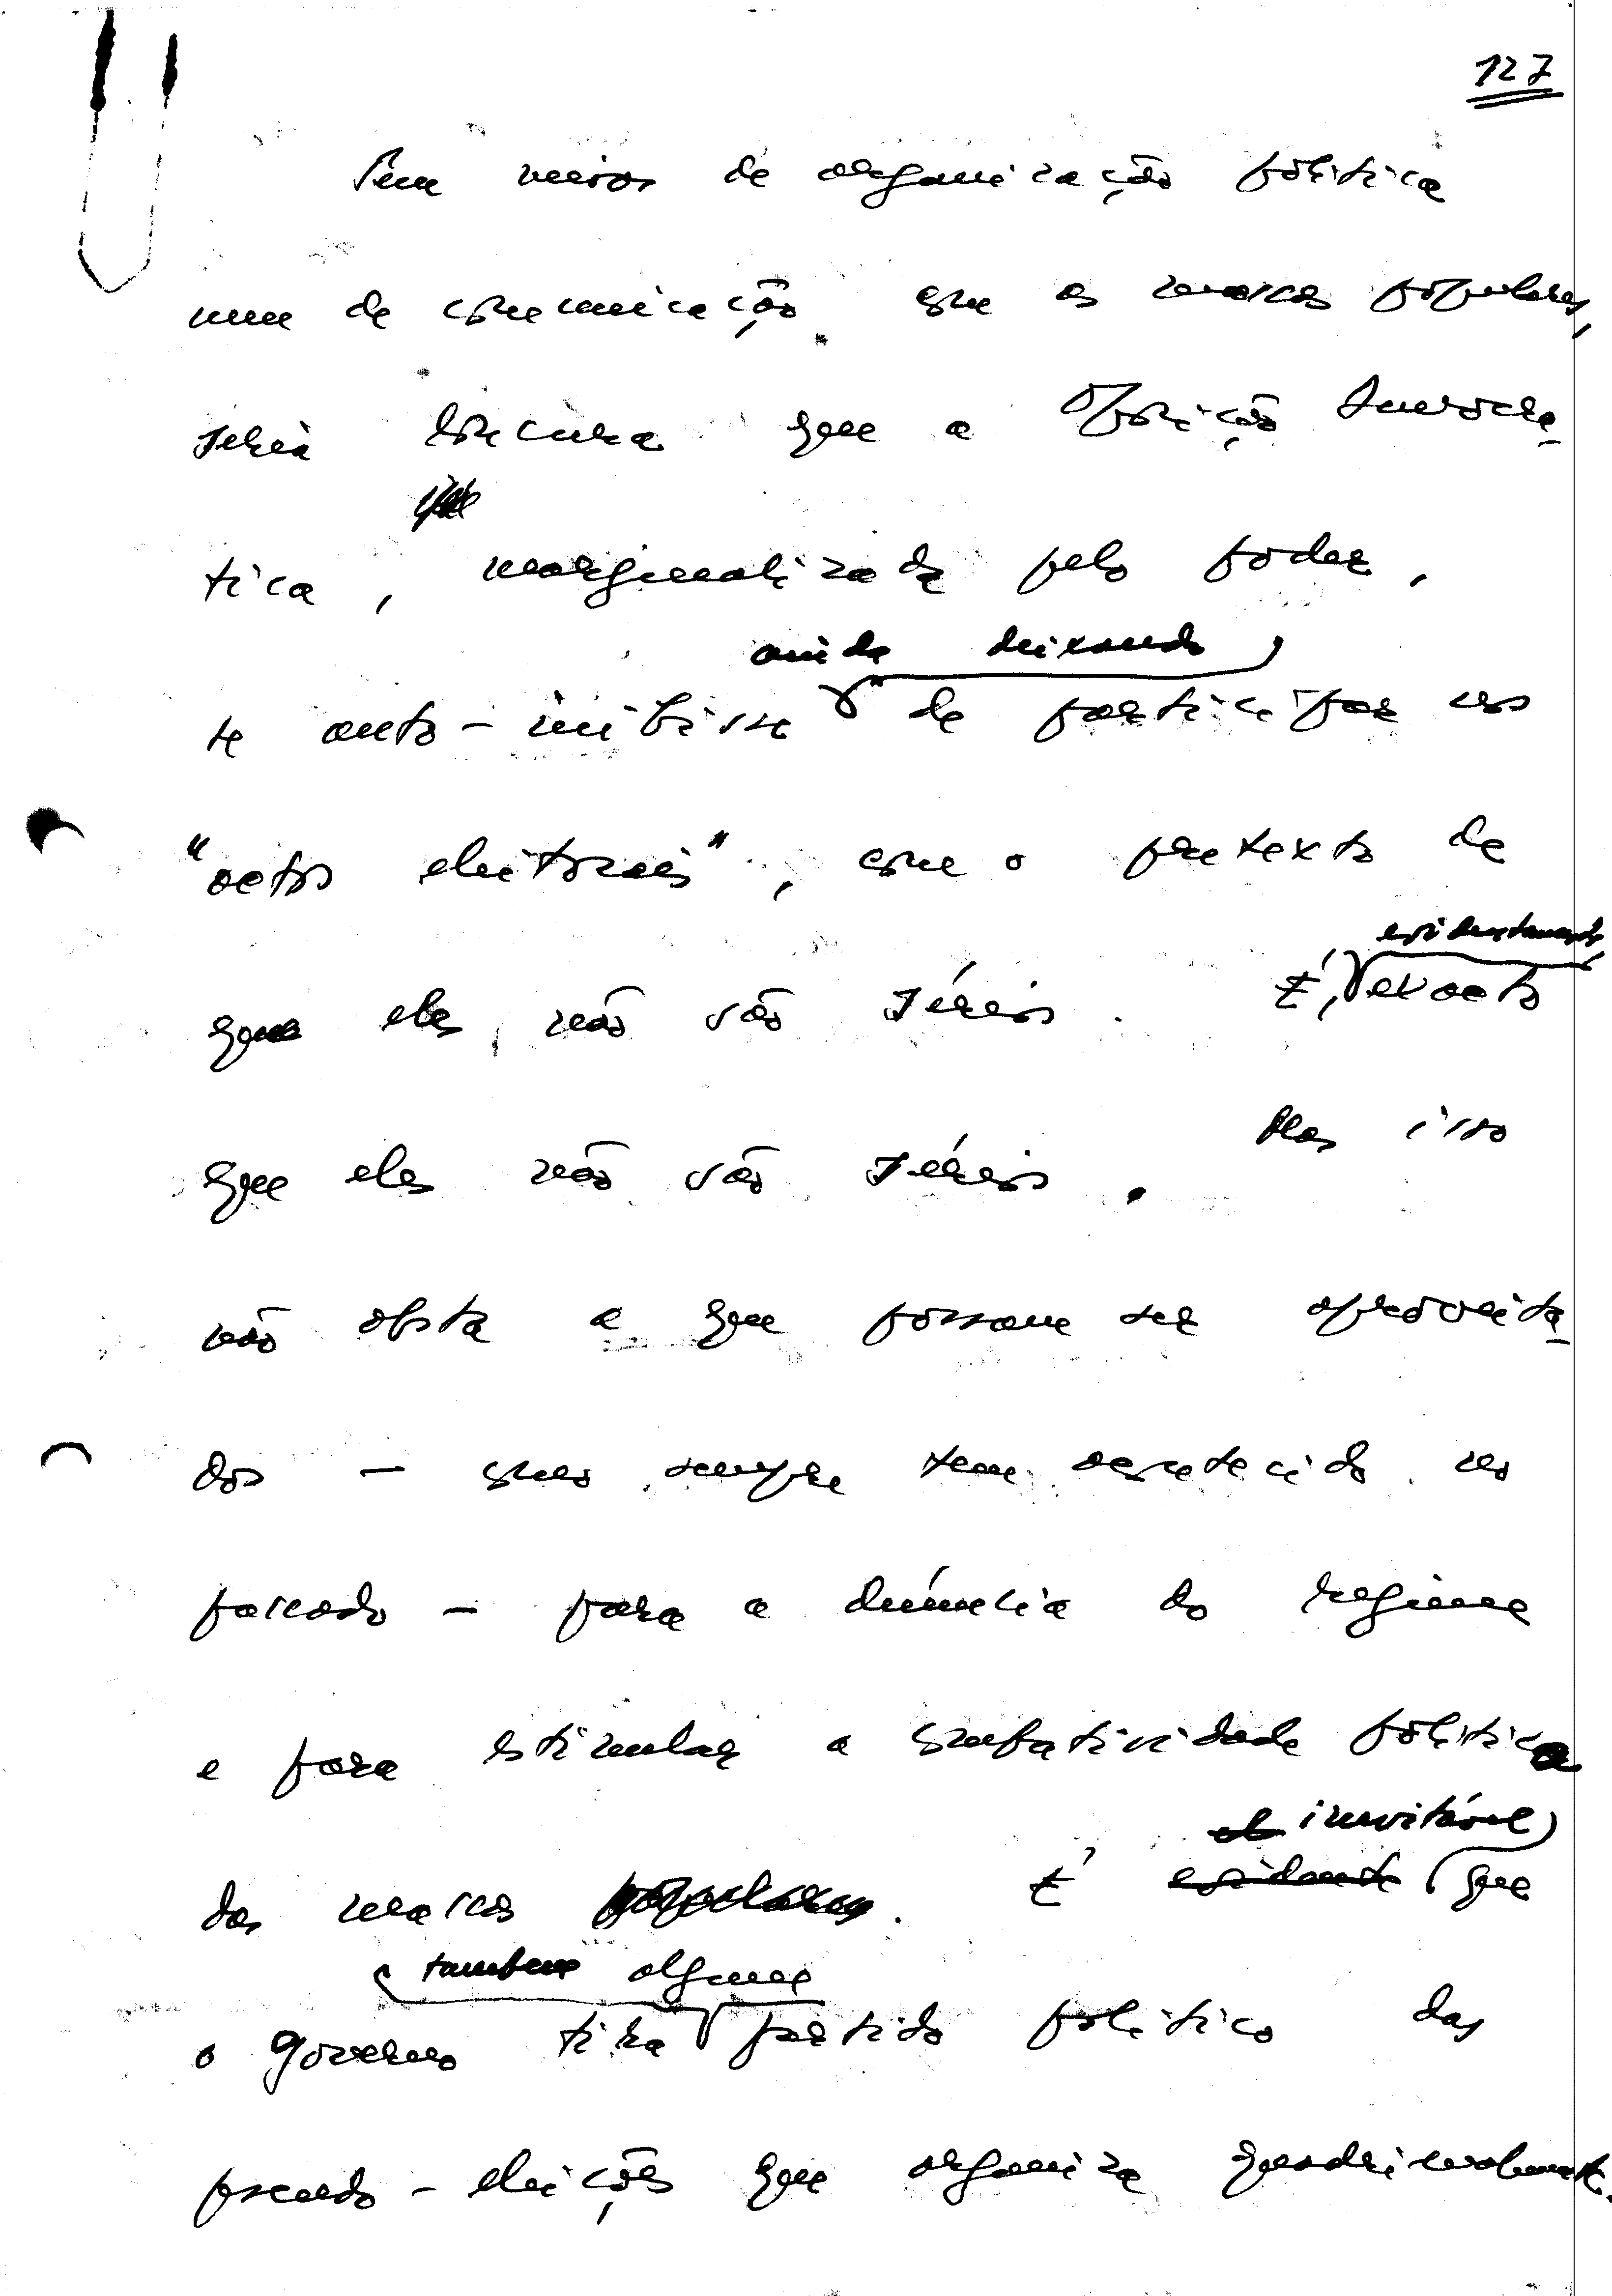 127
Sem meios de organização política
nem de comunicação com as massas populares,
seria loucura que a Oposição Democrá-
tica, marginalizada pelo poder,
ainda deixando
se auto-inibisse de participar nos
"actos eleitorais", com o pretexto de
evidentemente,
que eles não são sérios. É, exacto
que eles não são sérios. Mas isso
não obsta a que possam ser aproveita-
dos — como sempre tem acontecido no
passado — para a denúncia do regime
e para estimular a combatividade política
inevitável
das massas populares. É evidente que
tambem algum
o Governo tira partido político das
pseudo-eleições que organiza quadrienalmente.